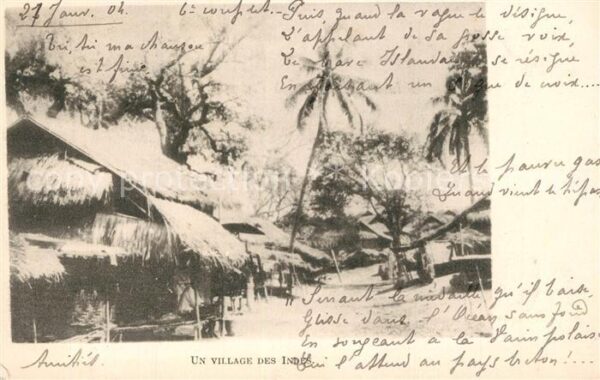 27 Janv. 04. 6e couplet.
Puis, quand la vague le désigne,
L'appelant de sa grosse voix,
Le brave Islandais se résigne
En faisant un signe de croix....
Hi, hi ma chanson
est finie
Et le pauvre gas
Quand vient le trépas
Serrant la médaille qu'il baise,
Glisse dans l'Océan sans fond
En songeant à la Paimpolaise
Qui l'attend au pays breton!...
Amitiés
UN VILLAGE DES INDES